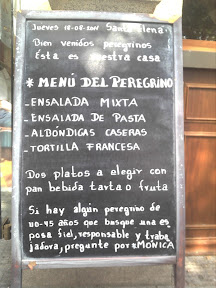 Jueves 18-08-2011 Santa Elena.
Bien venidos peregrinos!
Ésta es vuestra casa
* MENÚ DEL PEREGRINO
- ENSALADA MIXTA
- ENSALADA DE PASTA
- ALBÓNDIGAS CASERAS
- TORTILLA FRANCESA
Dos platos a elegir con
pan bebida tarta o fruta
Si hay algún peregrino de
40-45 años que busque una es
posa fiel, responsable y traba
jadora, pregunte por: MÓNICA